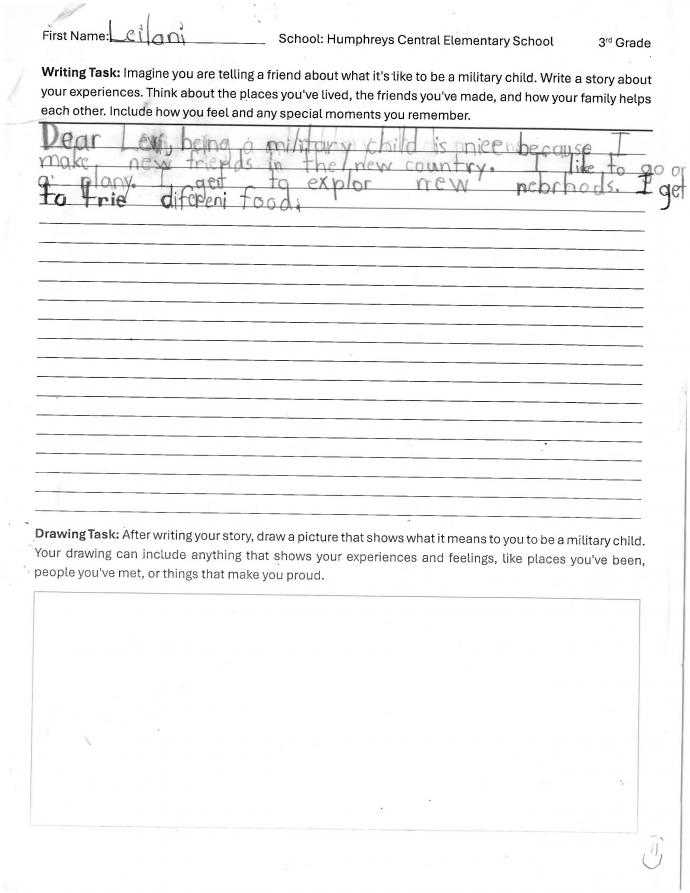 First Name: Leilani School: Humphreys Central Elementary School 3rd Grade
Writing Task: Imagine you are telling a friend about what it's like to be a military child. Write a story about
your experiences. Think about the places you've lived, the friends you've made, and how your family helps
each other. Include how you feel and any special moments you remember.
Dear being a military child is nice because I
make new friends in the new country. I like to go
a plany. I get to explor new nebrhods. I get
to trie food.
Drawing Task: After writing your story, draw a picture that shows what it means to you to be a military child.
Your drawing can include anything that shows your experiences and feelings, like places you've been,
people you've met, or things that make you proud.